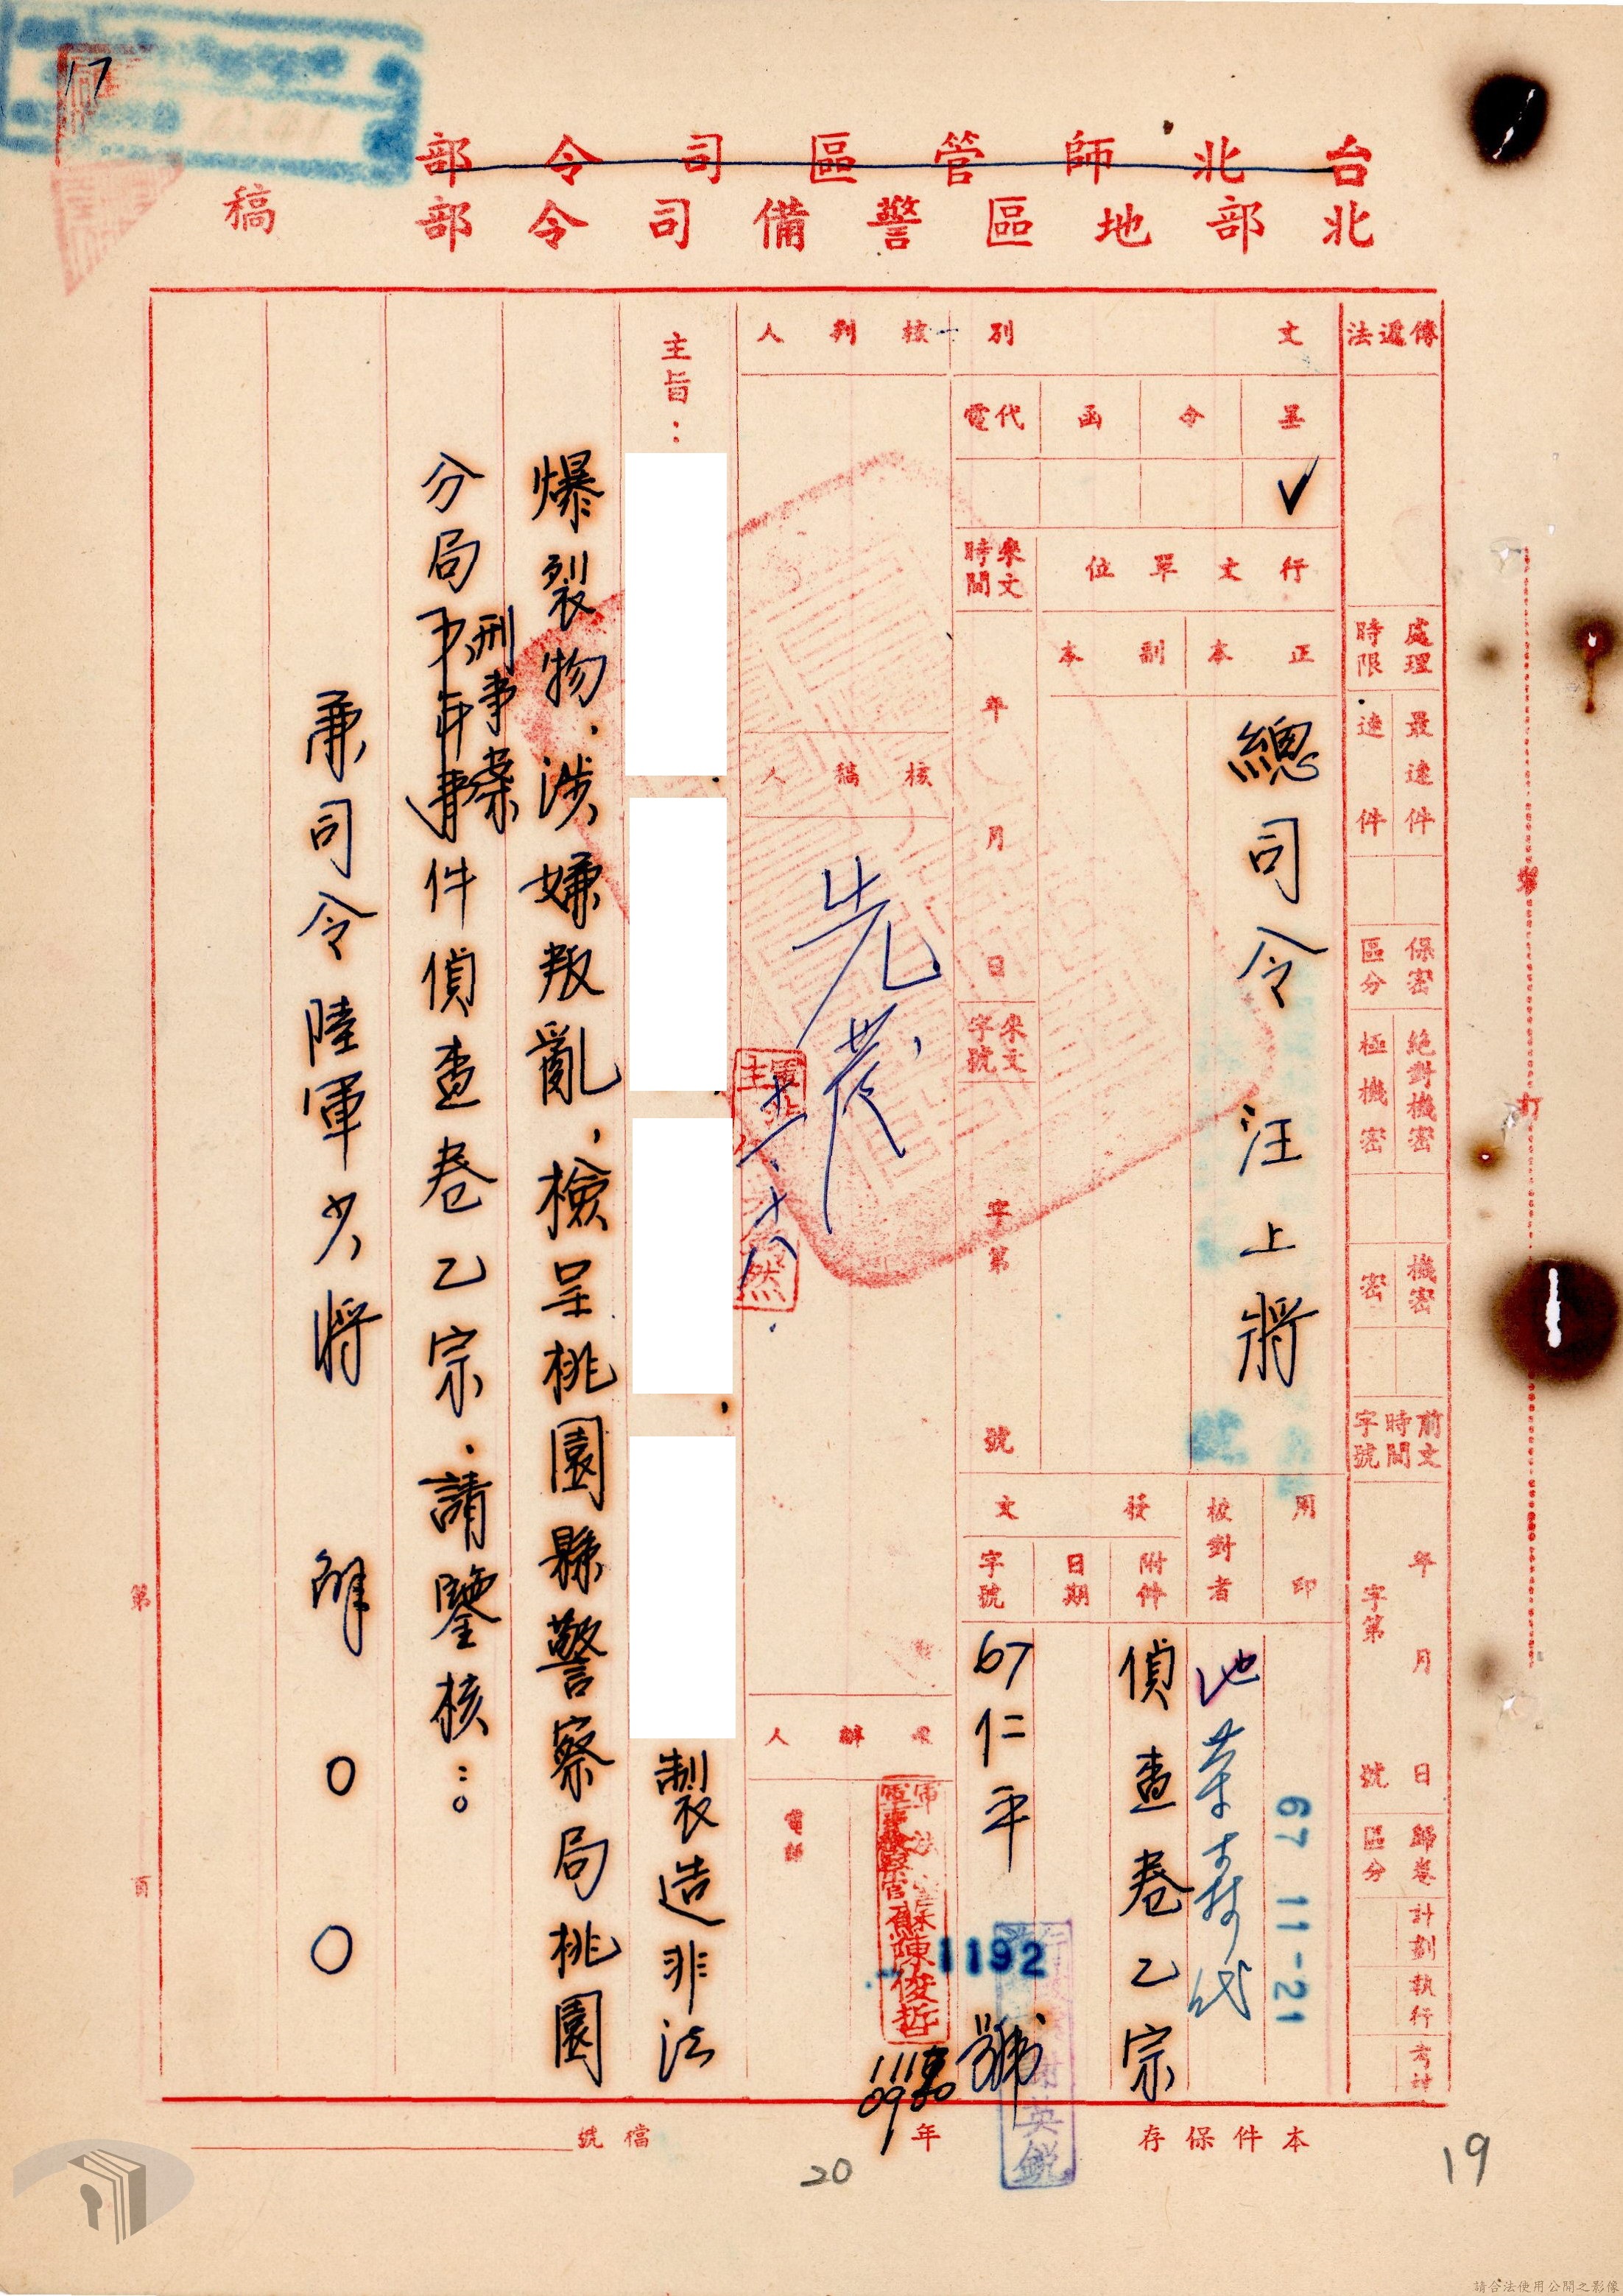 17
台北師管區司令部
北部地區警備司令部 稿
傳遞法
處理時限
最速件
速件
保密區分
絕對機密
極機密
機密
密
前文時間字號
年 月 日
字第 號
歸卷區分
計劃
執行
考核
文別
呈 令 函 代電
✓
行文單位
正本 副本
總司令 汪上將
來文時間
年 月 日
來文字號
字第 號
用印
67 11-21
校對者
發文
附件
偵查卷乙宗
日期
字號
67仁平 1192 號
核判人
核稿人
十一、十八
承辦人
電話
陳俊哲
主旨:
製造非法
爆裂物,涉嫌叛亂,檢呈桃園縣警察局桃園
分局刑事案件偵查卷乙宗,請鑒核:。
兼司令陸軍少將 解〇〇
第 頁
本件保存 年
檔號
英銳
19
20
請合法使用公開之影像